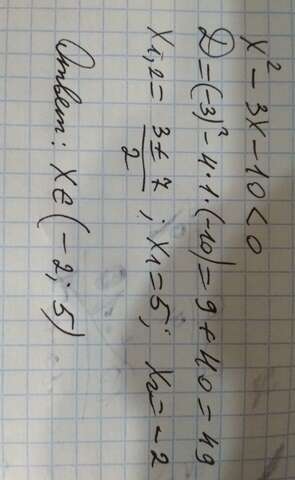 x² - 3x - 10 < 0
D = (-3)² - 4·1·(-10) = 9 + 40 = 49
x₁,₂ = (3 ± 7)/2 ; x₁ = 5; x₂ = -2
Ответ: x ∈ (-2; 5)